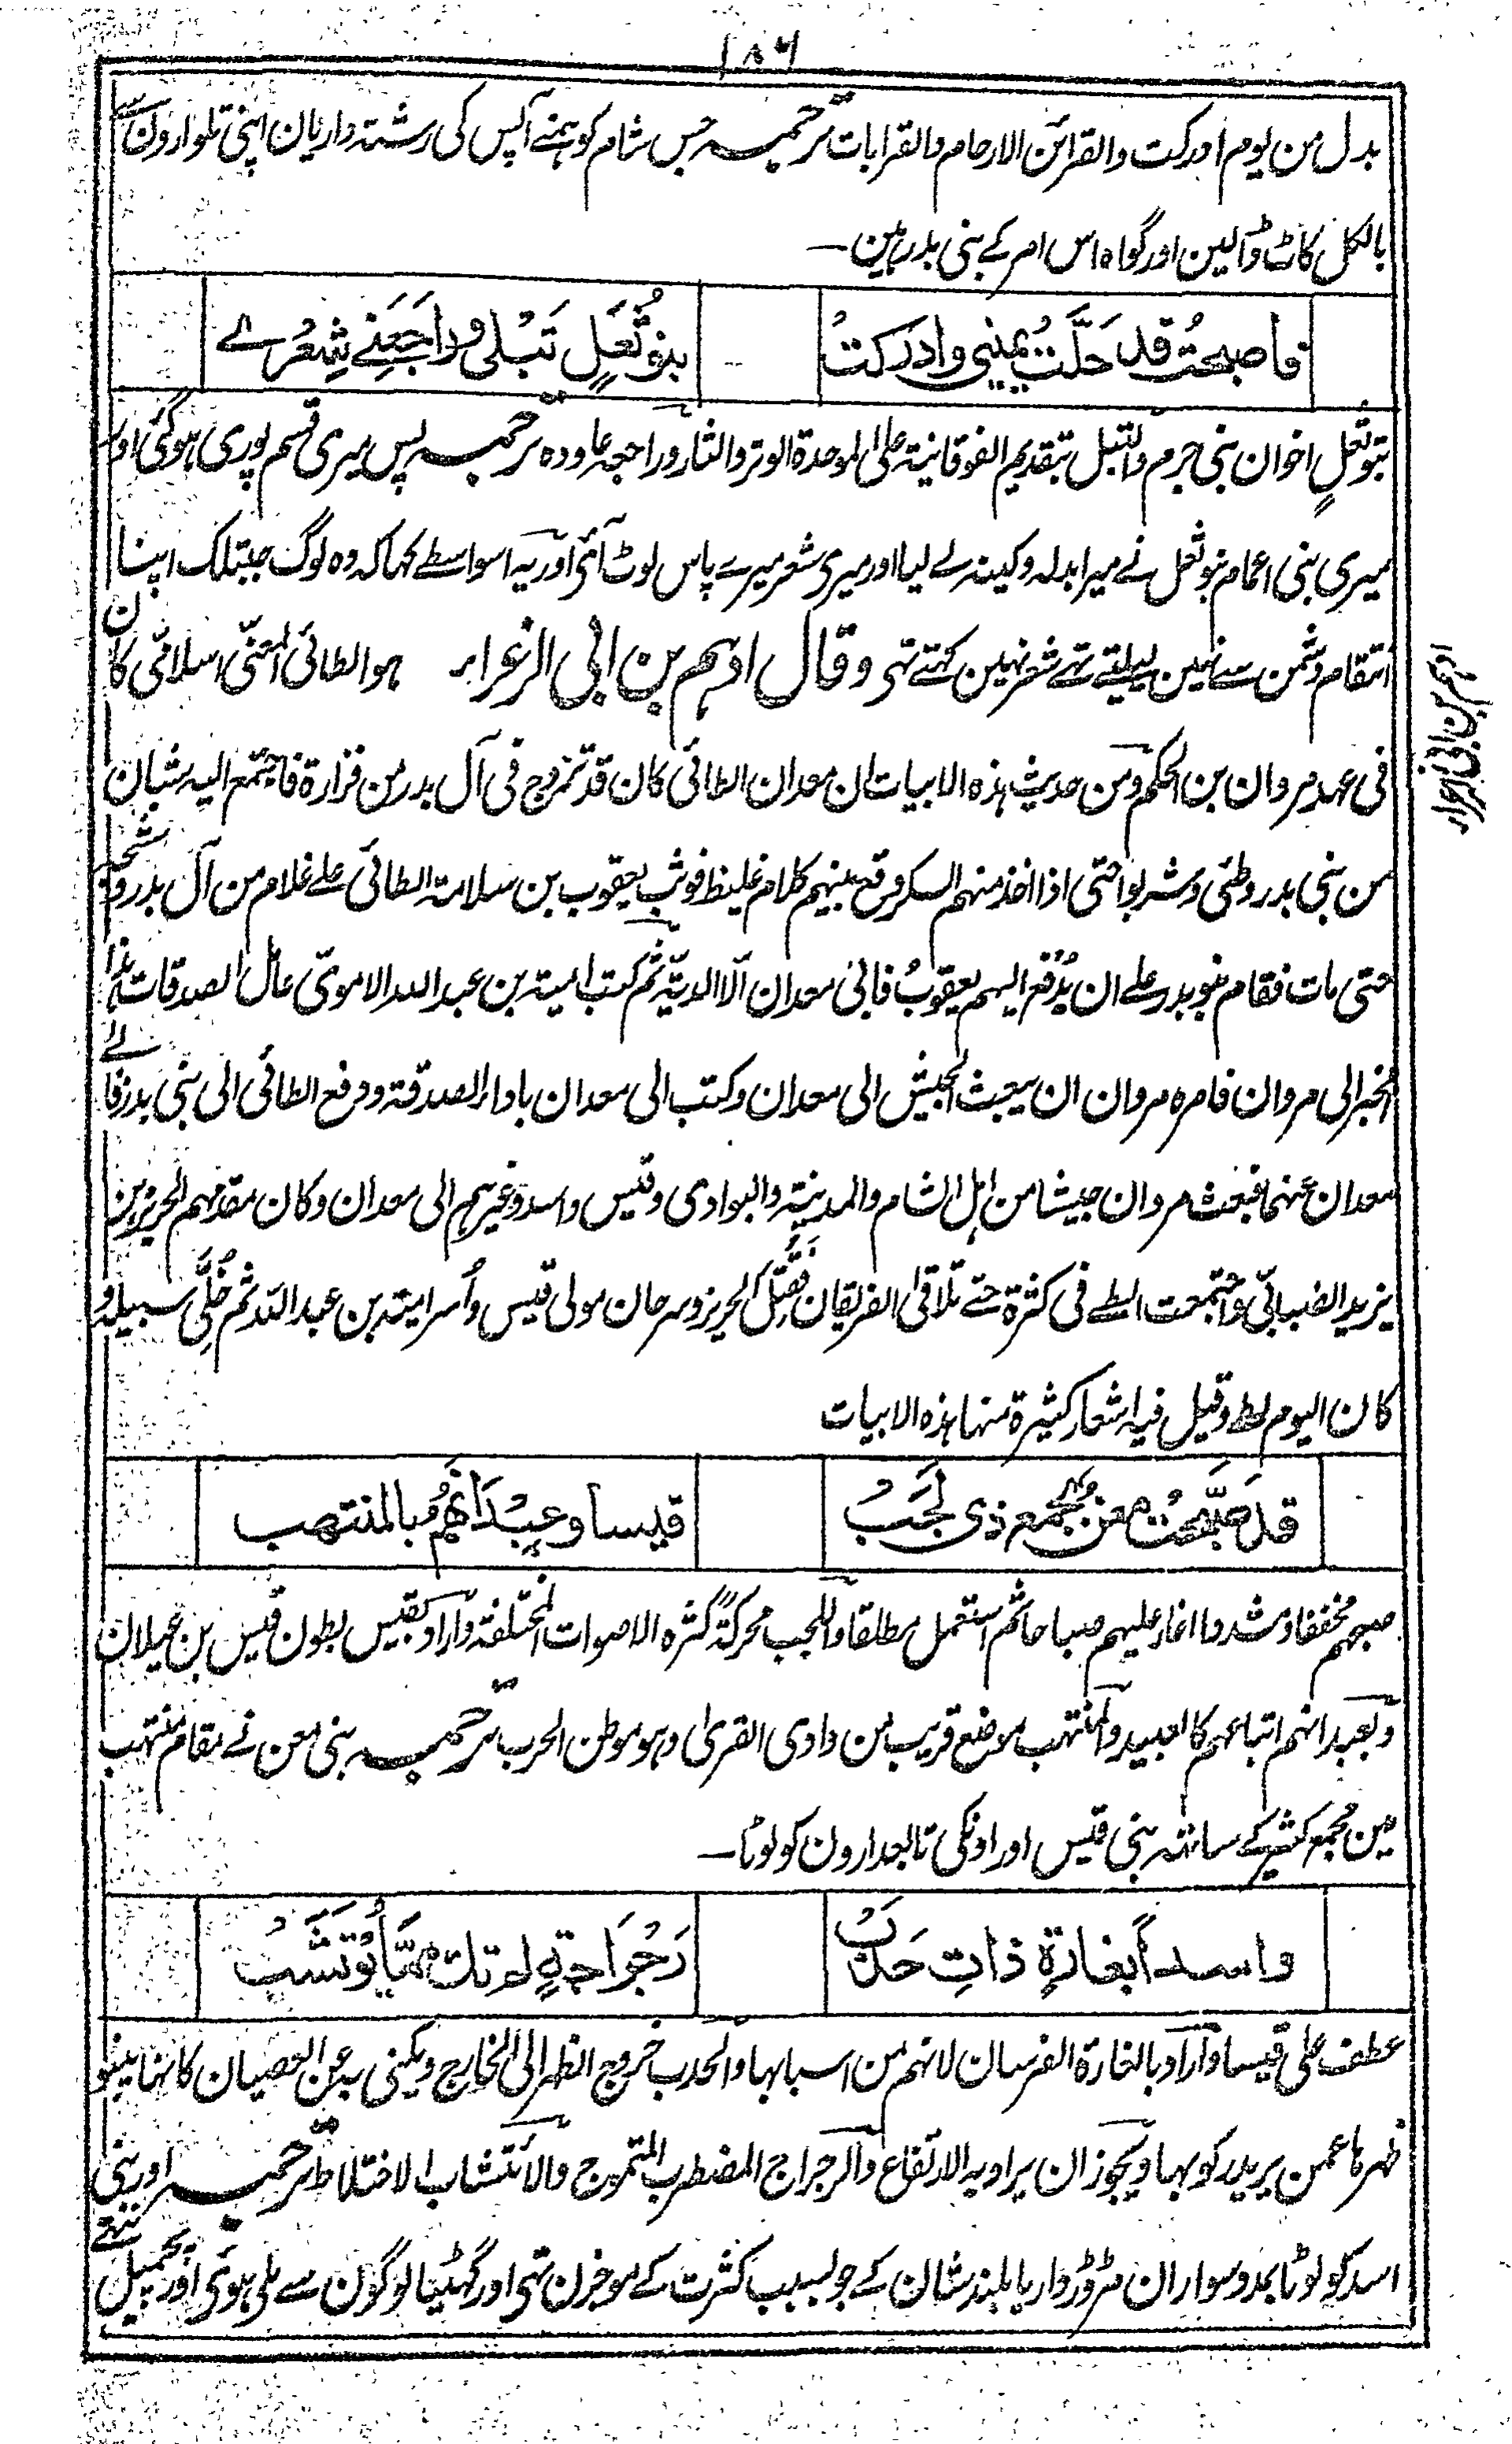 ۱۸۶
بدل من یوم ادرکت والقرائن الارحام والقرابات ترجمہ جس شام کو ہمنے آپس کی رشتہ داریان اپنی تلوارون سے
بالکل کاٹ ڈالین اور گواہ اس امر کے بنی بدر ہین ۔
فاصبحتُ قد حَلَّت یمینی وادرکتُ
بنو ثُعَلٍ تَبْلی وراجَعَنی شِعْرے
بنو ثعل اخوان بنی جرم والتبل بتقدیم الفوقانیة علی الموحدة الوتر والثار وراجعہ عاودہ ترجمہ پس میری قسم پوری ہوگئی اور
میری بنی اعمام بنو ثعل نے میرا بدلہ وکینہ لے لیا اور میری شعر میرے پاس لوٹ آئی اور یہ اسواسطے کہا کہ وہ لوگ جبتلک اپنا
انتقام دشمن سے نہین لیلیتے تھے شعر نہین کہتے تہی وقال ادہم بن ابی الزعراء ہو الطائی المعنّی اسلامّی کان
فی عہد مروان بن الحکم ومن حدیث ہذہ الابیات ان معدان الطائی کان قد تزوج فی آل بدر من فزارة فاجتمع الیہ شبان
من بنی بدر وطئی وشربوا حتی اذا اخذ منہم السکر وقع بینہم کلام غلیظ فوثب یعقوب بن سلامة الطائی علے غلام من آل بدر وشجہ
حتی مات فقام بنو بدر علے ان یُدْفع الیہم یعقوبُ فابٰی معدان الّا الدیّة ثم کتب امیتہ بن عبد اللہ الاموی عامل الصدقات ہذا
الخبر الی مروان فامرہ مروان ان یبعث الجیش الی معدان وکتب الی معدان باداء الصدقة ودفع الطائی الی بنی بدر فابٰے
معدان عنہما فبعث مروان جیشا من اہل الشام والمدینة والبوادی وقیس واسد وغیرہم الی معدان وکان مقدمہم الحریز بن
یزید الضبابی واجتمعت الطے فی کثرة حتے تلاقی الفریقان فقُتِل الحریز وسرحان مولی قیس واُسر امیتہ بن عبد اللہ ثم خُلِّی سبیلہ و
کان الیوم لطے وقیل فیہ اشعار کثیرة منہا ہذہ الابیات
قد صَبَّحَتْ معنٌ بجمعٍ ذی لَجَبْ
قیسا وعِبْدَانَهُمْ بالمنتهب
صبحہم مخففا ومشددا اغار علیہم صباحا ثم استعمل مطلقا واللجب محرکةً کثرہ الاصوات المختلفة واراد بقیس بطون قیس بن عیلان
وبعبدانہم اتباعہم کالعبید والمنتہب موضع قریب من وادی القریٰ وہو موطن الحرب ترجمہ بنی معن نے مقام منتہب
مین مجمع کثیر کے ساتھ بنی قیس اور اونکی تابعدارون کو لوٹا ۔
واسداً بغارةٍ ذاتِ حَدَبْ
رَجْراجةٍ لم تك ممّا یُؤتَشَبْ
عطف علی قیسا واراد بالغارة الفرسان لانہم من اسبابہا والحدب خروج الظہر الی الخارج ویکنی بہ عن العصیان کانہا ینبو
ظہرہا عمن یرید رکوبہا ویجوز ان یراد بہ الارتفاع والرجراج المضطرب المتموج والائتشاب الاختلاط ترجمہ اور بنی
اسد کو لوٹا بمدد سواران مڑوڑ دار یا بلند شان کے جو بسبب کثرت کے موجزن تہی اور گھٹیا لوگون سے ملی ہوئی اور